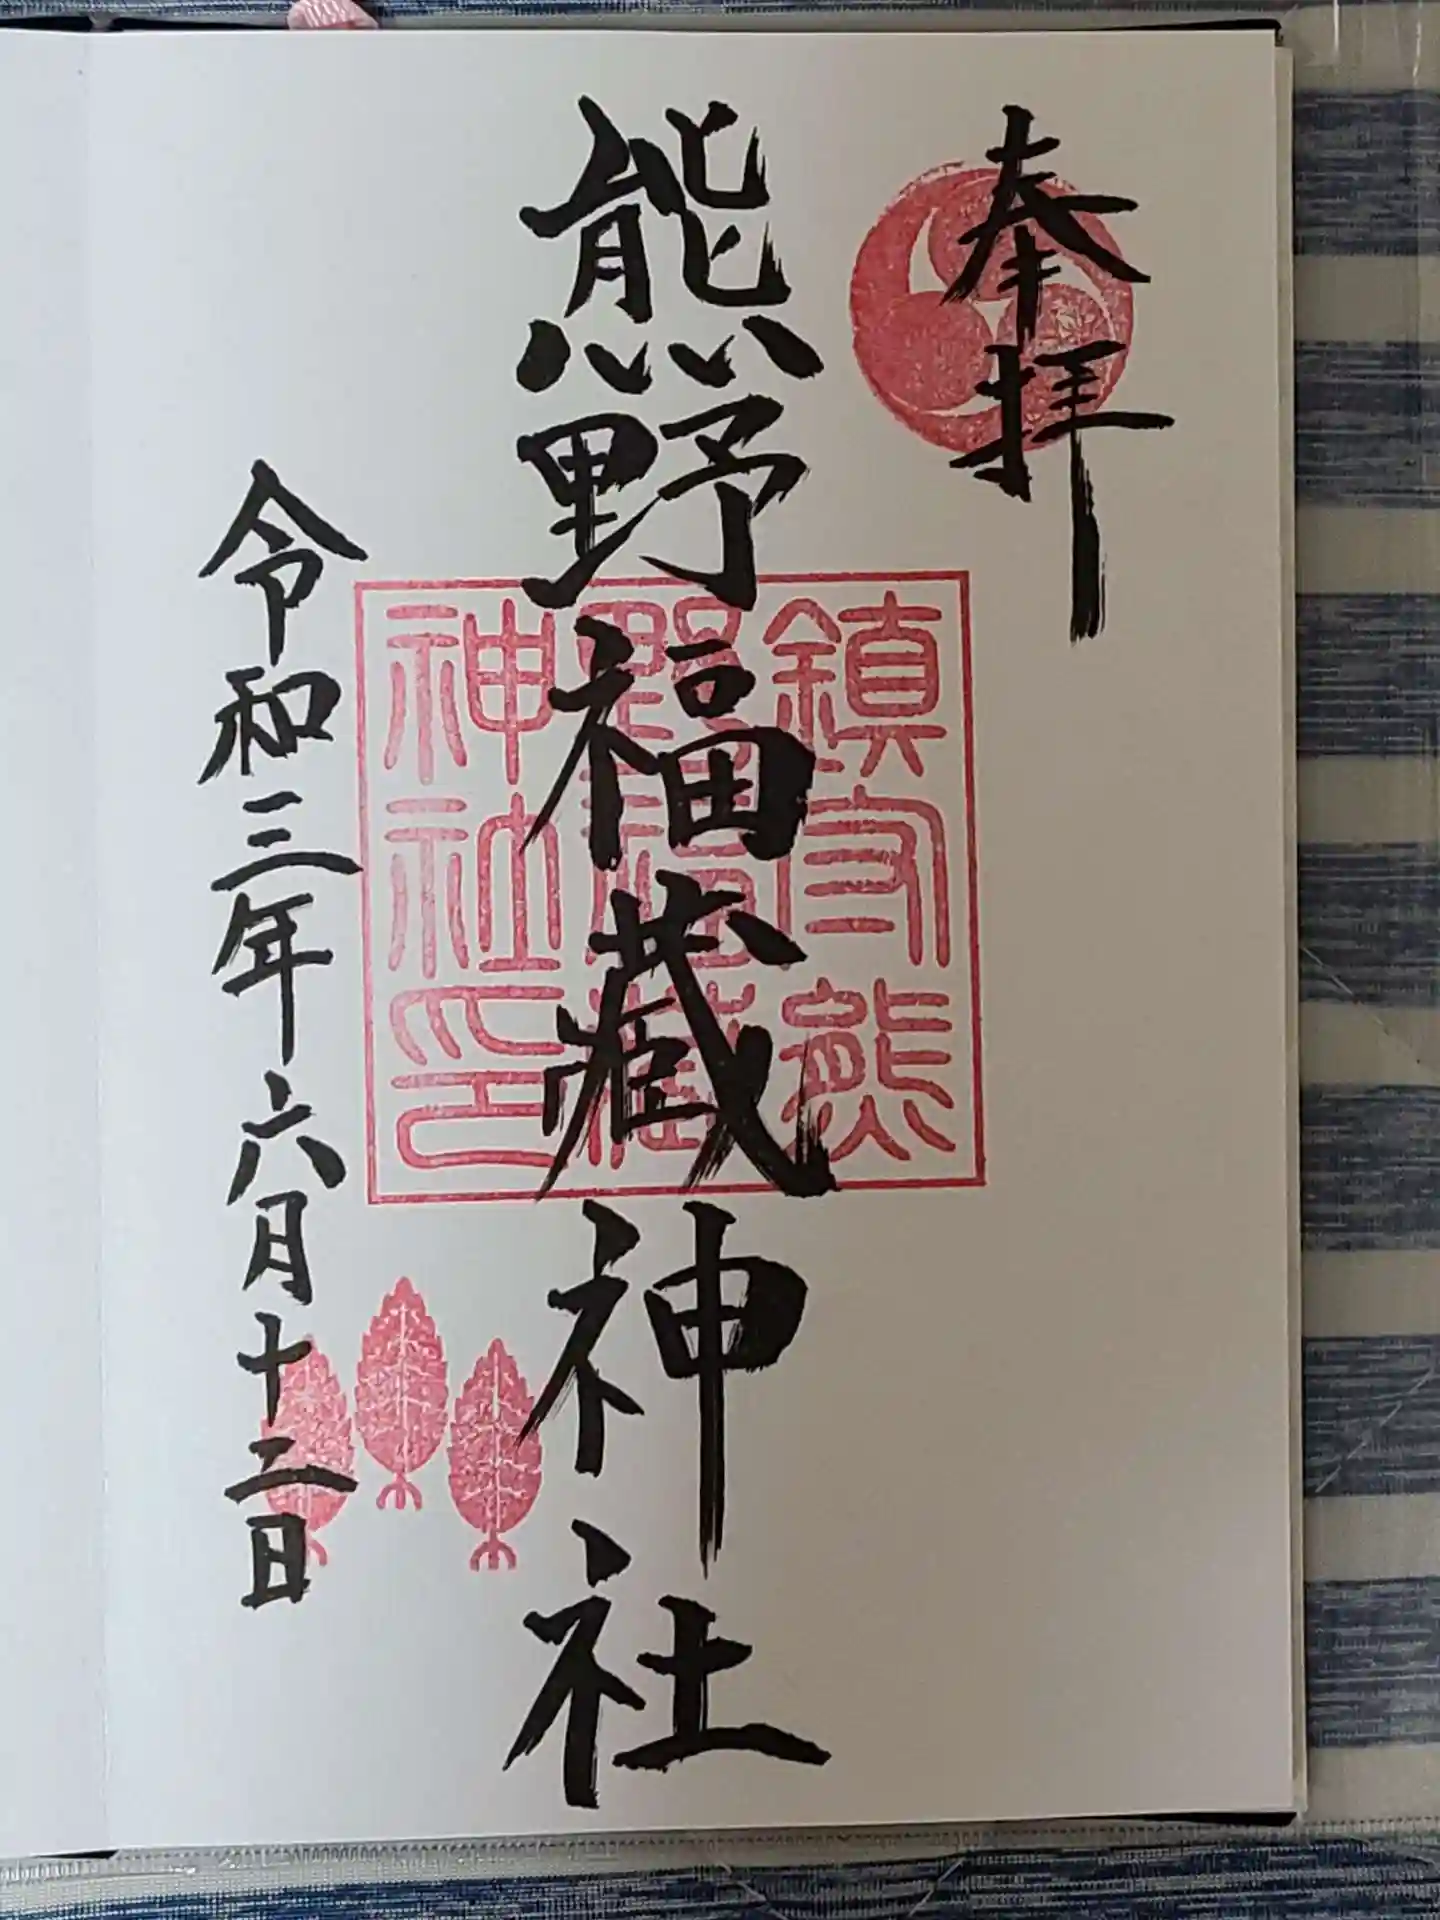 奉拝
熊野福蔵神社
鎮守熊
野福蔵
神社印
令和三年六月十二日